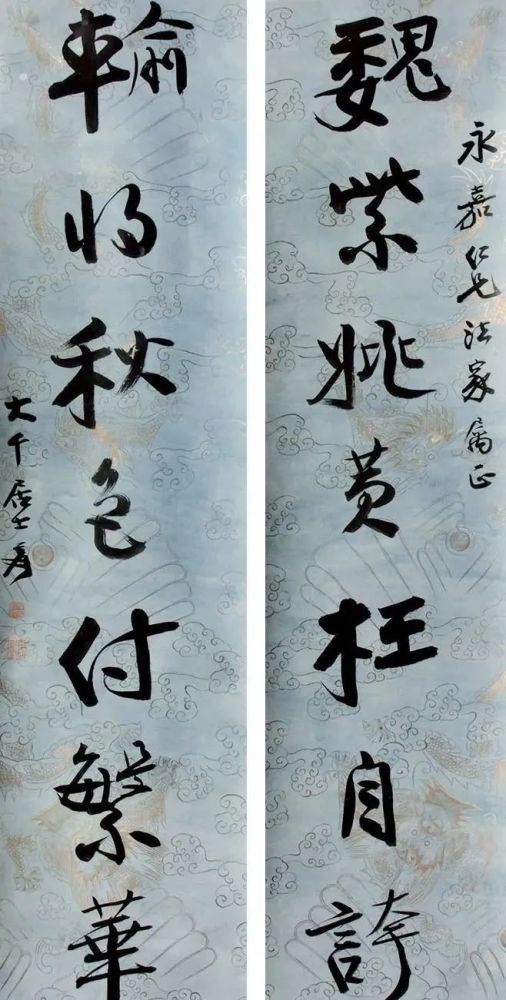 魏紫姚黄枉自誇
永嘉仁兄法家屬正
輸將秋色付繁華
大千居士爰